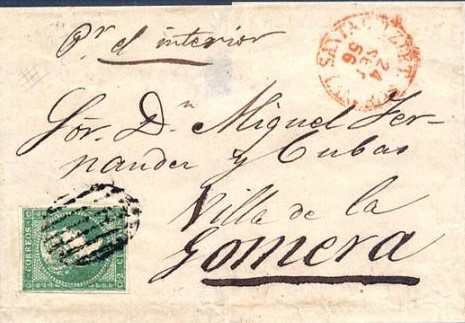 Pr el interior
SANTA CRUZ DE T.
24
SET
56
Sōr. Dn Miguel Fer-
nandez y Cubas
Villa de la
Gomera
CORREOS